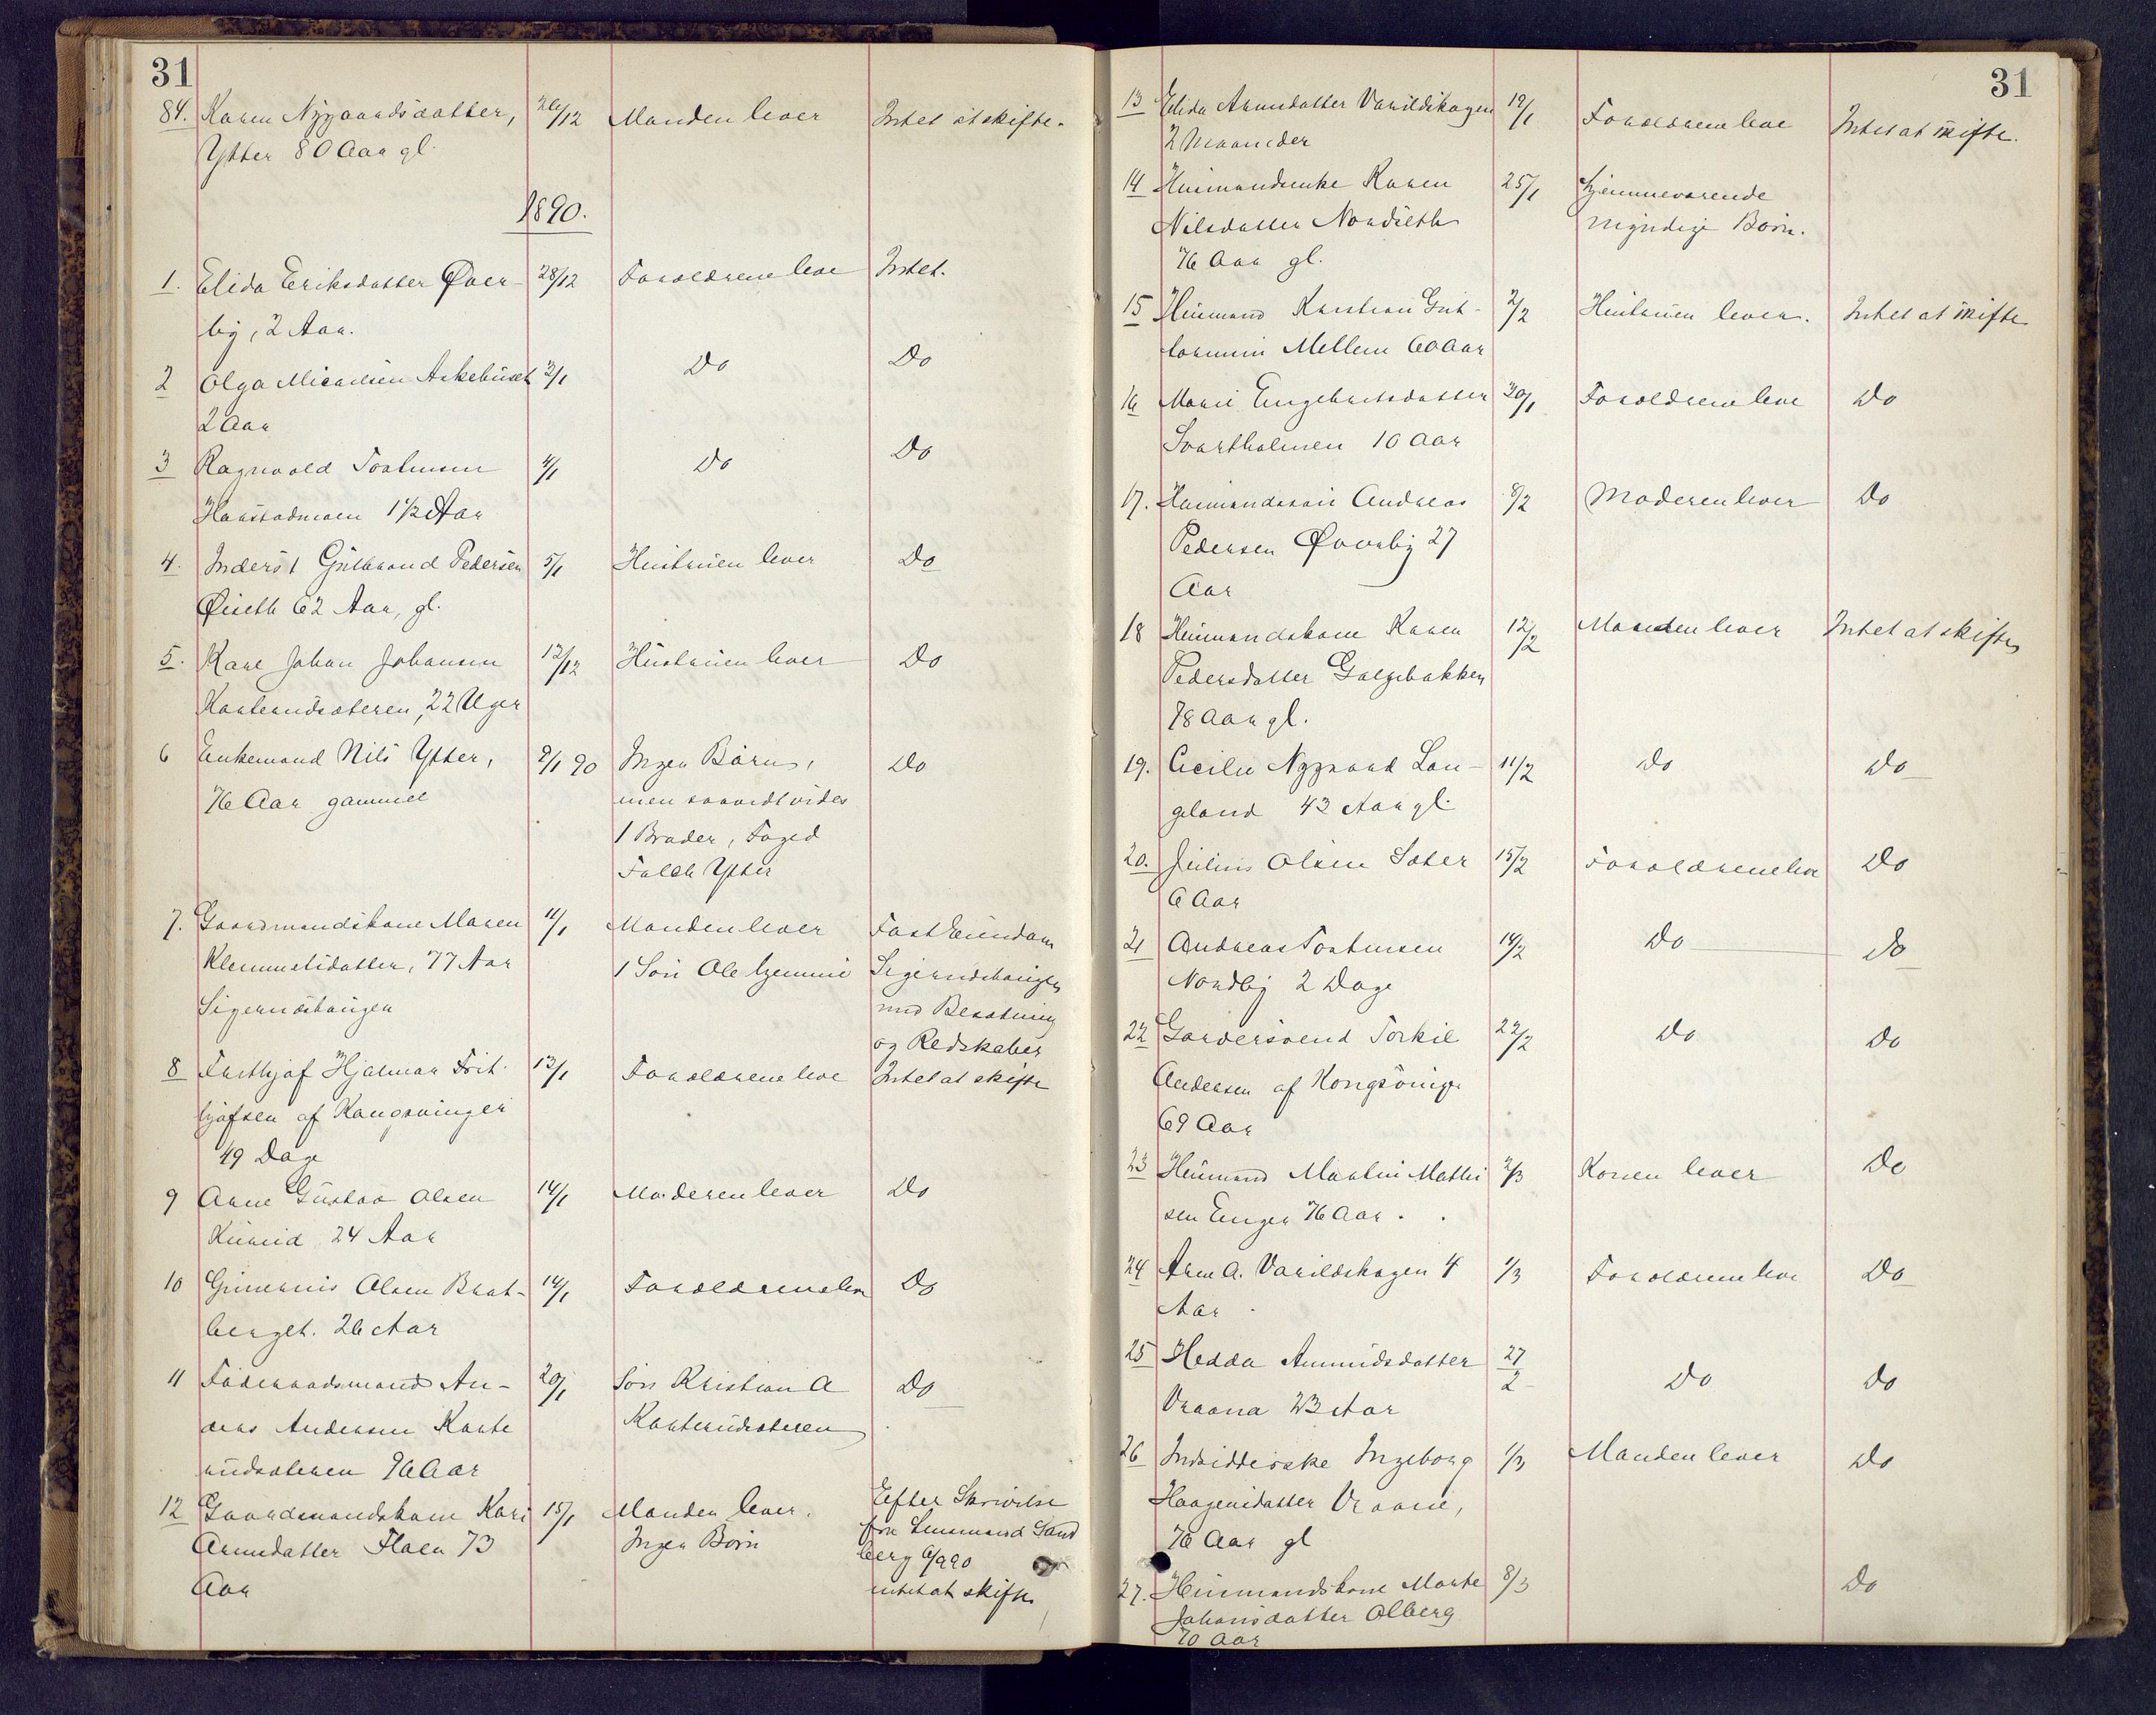 31
84. Karen Nygaardsdatter, 26/12 Manden lever Intet at skifte.
Ytter 80 Aar gl.
1890.
1. Elida Eriksdatter Øver- 28/12 Forældrene leve Intet.
by, 2 Aar.
2 Olga Micaelsen Askehuset 2/1 Do Do
2 Aar
3 Ragnvald Torstensen 4/1 Do Do
1 1/2 Aar
4. Inderst Gulbrand Pedersen 5/1 Hustruen lever Do
Øiseth 62 Aar, gl.
5. Karl Johan Johansen 12/12 Hustruen lever Do
22 Uger
6 Enkemand Nils Ytter, 9/1 90 Ingen Børn, Do
76 Aar gammel men saavidt vides
1 Broder, Foged
Falck Ytter
7. Gaardmandskone Maren 11/1 Manden lever Fast Eiendom
Klemmetsdatter, 77 Aar 1 Søn Ole hjemme Sigernæshaugen
Sigernæshaugen med Besætning
og Redskaber
8 Frithjof Hjalmar Frit- 13/1 Forældrene leve Intet at skifte
hjofsen af Kongsvinger
49 Dage
9 Arne Gustav Olsen 14/1 Moderen lever Do
24 Aar
10 Olsen Brat- 14/1 Forældrene leve Do
berget. 26 Aar
11 Føderaadsmand An- 20/1 Søn Kristian A Do
dreas Andersen Karte Karterudsæteren
rudsæteren 76 Aar
12 Gaardmandskone Kari 15/1 Manden lever. Efter Skrivelse
Arnesdatter Floen 73 Ingen Børn fra Lensmand Sand
Aar berg 6/2 90
intet at skifte
31
13 Elida Arnesdatter Varildskogen 19/1 Forældrene leve Intet at skifte.
2 Maaneder
14 Husmandsenke Karen 25/1 Hjemmeværende
Nilsdatter Nordseth myndige Børn.
76 Aar gl.
15 Husmand Kristian Gut- 2/2 Hustruen lever. Intet at skifte
tormsen Mellem 60 Aar
16 Marie Engebretsdatter 30/1 Forældrene leve Do
Svartholmen 10 Aar
17. Husmandssøn Andreas 8/2 Moderen lever Do
Pedersen Øverby 27
Aar
18 Husmandskone Karen 12/2 Manden lever Intet at skifte
Pedersdatter Galgebakken
78 Aar gl.
19. Cecilie Nygaard Lan- 11/2 Do Do
geland 43 Aar gl.
20. Julius Olsen Sæter 15/2 Forældrene leve Do
6 Aar
21 Andreas Torstensen 18/2 Do Do
Nordby 2 Dage
22 Garversvend Torkil 22/2 Do Do
Andersen af Kongsvinger
69 Aar
23 Husmand Martin Mathi 2/3 Konen lever Do
sen Enger 76 Aar.
24 Arne A. Varildskogen 4 1/3 Forældrene leve Do
Aar
25 Hedda Amundsdatter 27/2 Do Do
Vraana 23 Aar
26 Indsidderske Ingeborg 1/3 Manden lever Do
Haagensdatter
76 Aar gl
27. Husmandskone Marte 8/3 Do
Johansdatter Olberg
70 Aar